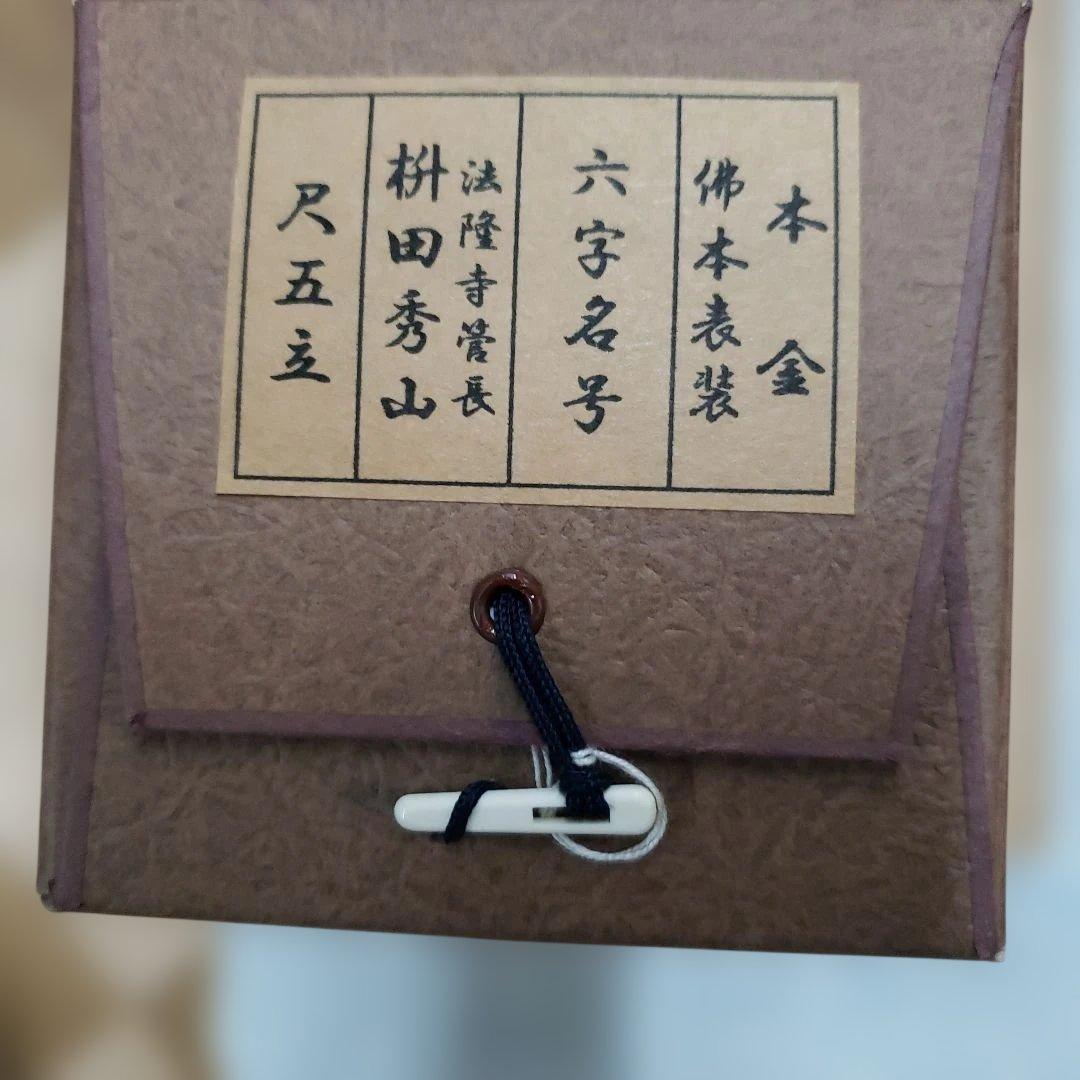 本金
佛本表装
六字名号
法隆寺管長
枡田秀山
尺五立